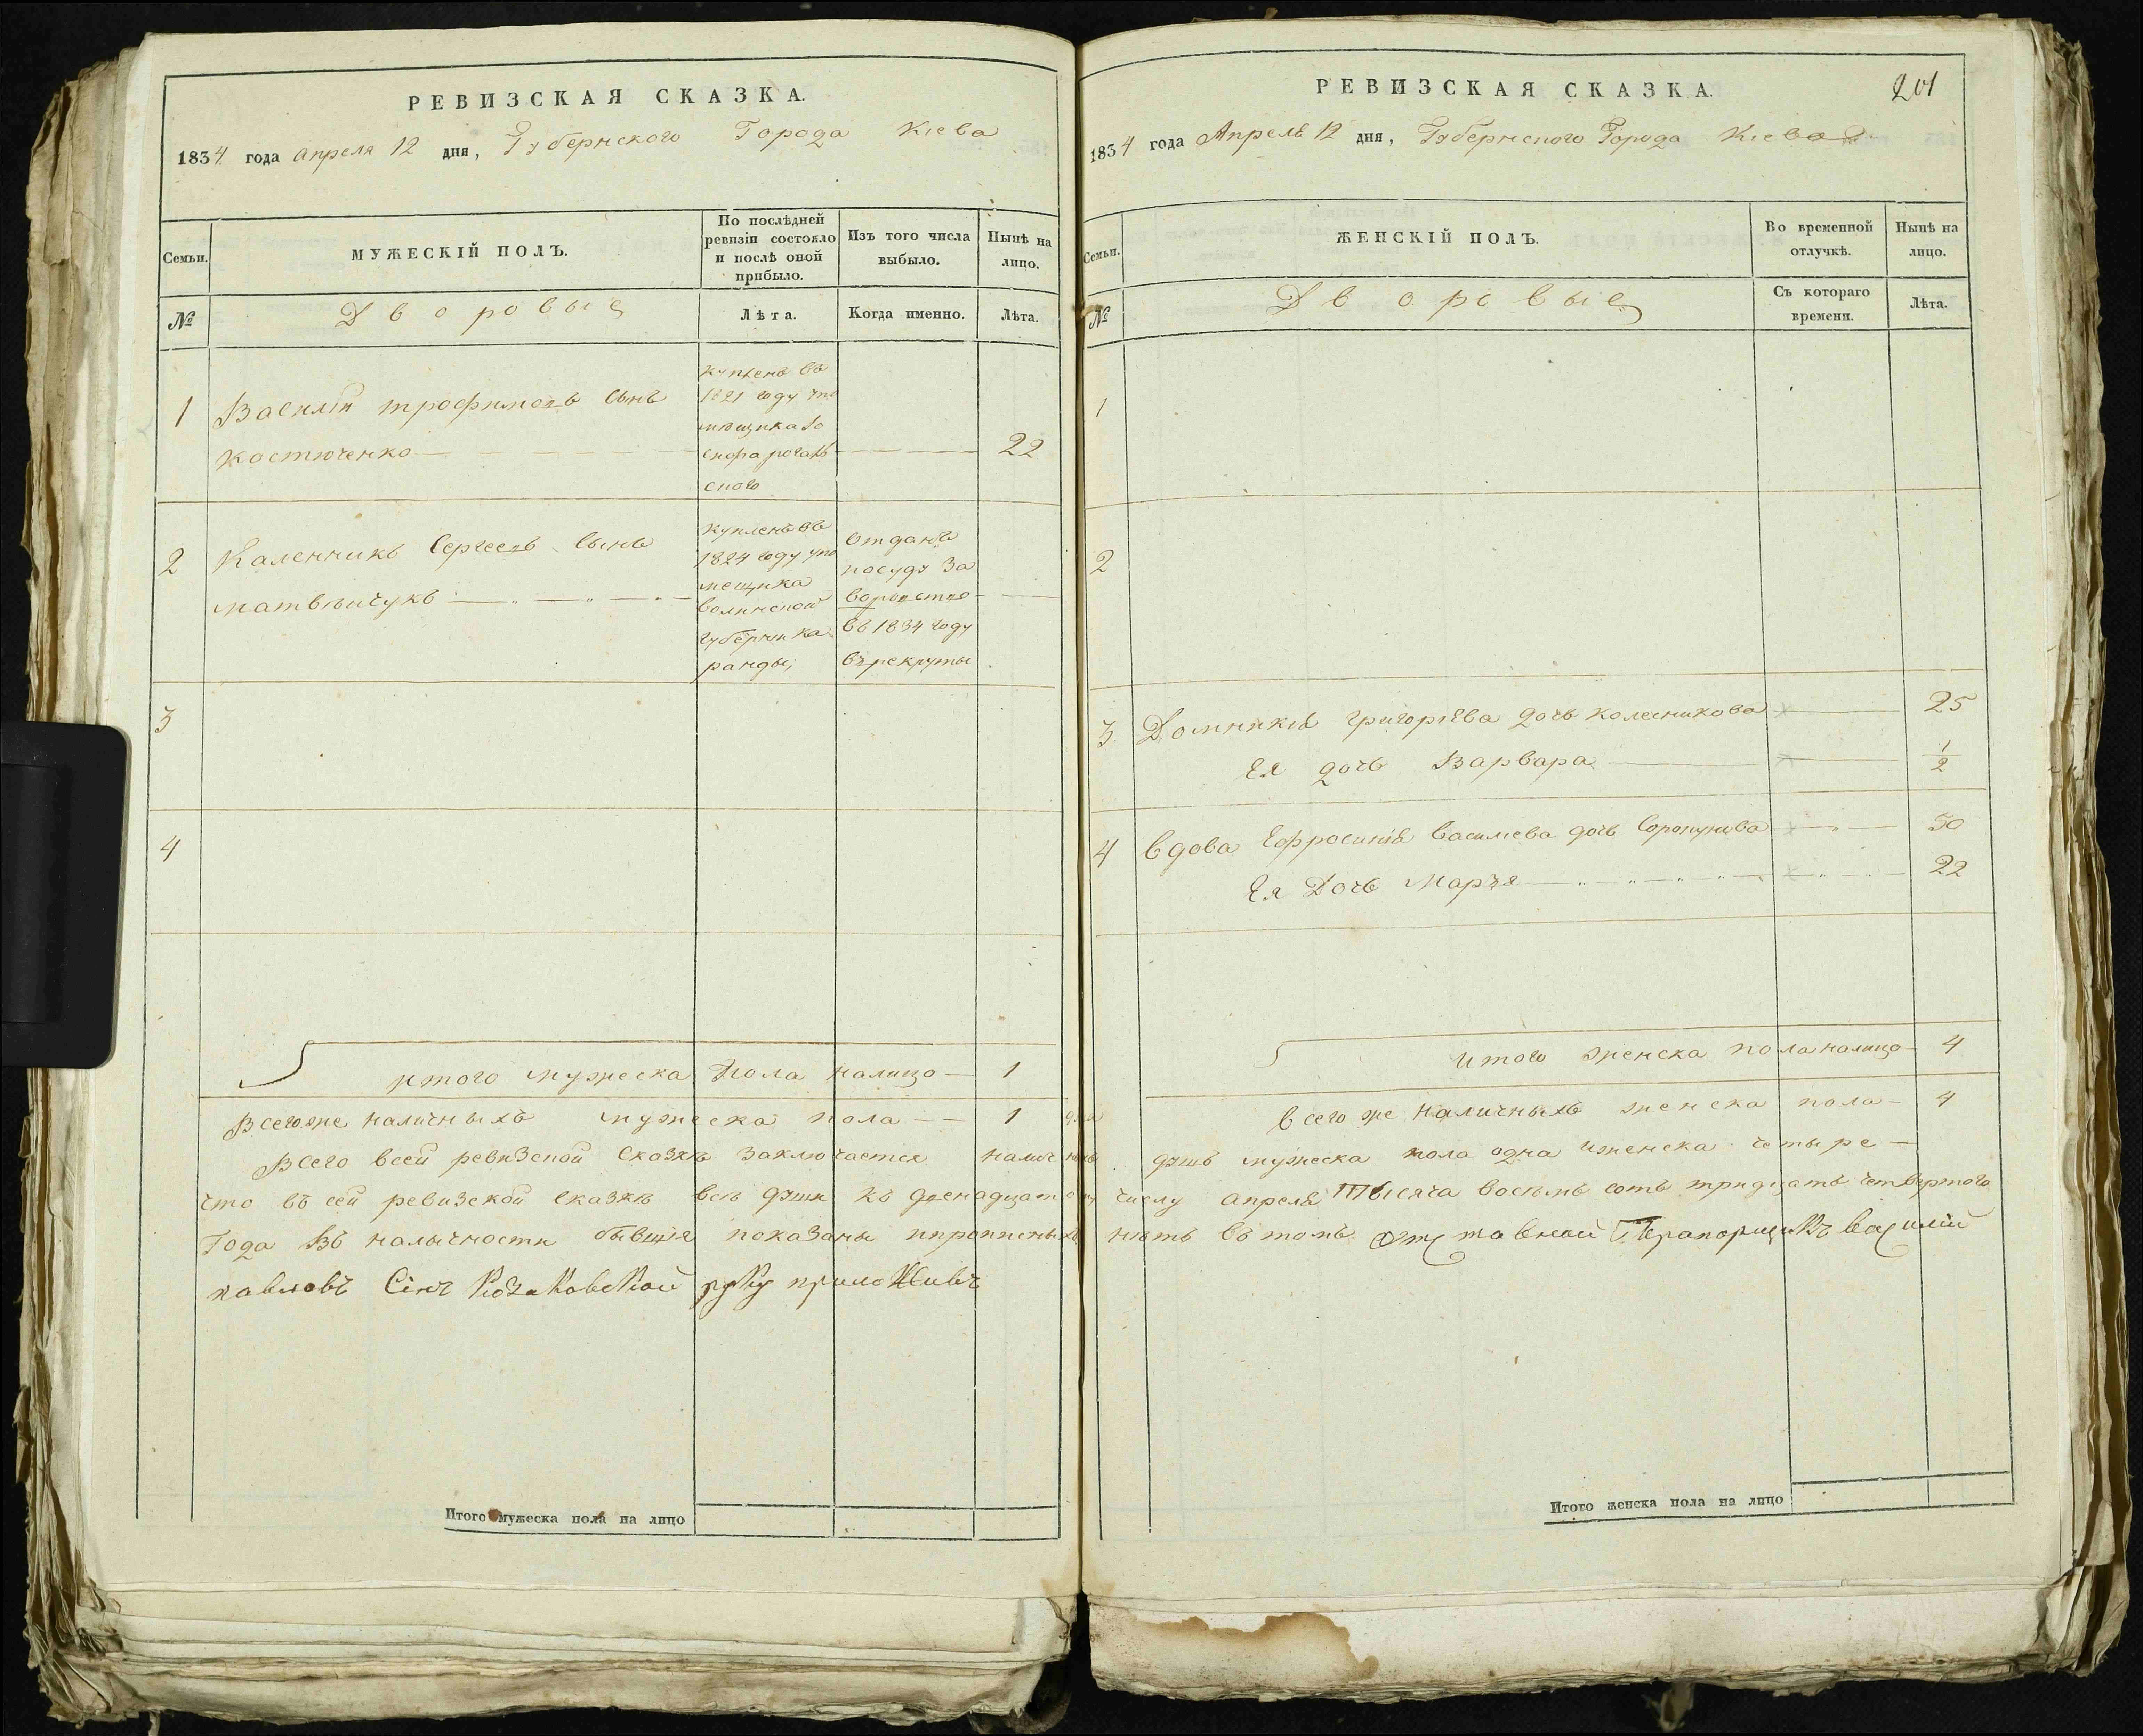 РЕВИЗСКАЯ СКАЗКА.
1834 года апреля 12 дня, Губернского Города Кіева
Семьи.
МУЖЕСКІЙ ПОЛЪ.
По послѣдней
ревизіи состояло
и послѣ оной
прибыло.
Изъ того числа
выбыло.
Нынѣ на
лицо.
№
Дворовые
Лѣта.
Когда именно.
Лѣта.
1
Василій трофимовъ сынъ
костюченко
купленъ въ
1821 году упо
мѣщика
22
2
Каленникъ Сергеевъ сынъ
матвѣйчукъ
купленъ въ
1824 году упо
мещика
волинской
губерніи ка
ранды,
отданъ
посуду за
воровство
въ 1834 году
въ рекруты
3
4
итого мужеска пола налицо 1
Всегоже наличныхъ мужеска пола 1
Всего всей ревизской сказкѣ заключается налич
что въ сей ревизской сказкѣ всѣ души къ двенадцатому
Года въ наличности бывшія показаны
павловъ Сінъ рску приложивъ
Итого мужеска пола на лицо
РЕВИЗСКАЯ СКАЗКА.
201
1834 года Апреля 12 дня, Губернского Города Кіева
Семьи.
ЖЕНСКІЙ ПОЛЪ.
Во временной
отлучкѣ.
Нынѣ на
лицо.
№
Дворовые
Съ котораго
времени.
Лѣта.
1
2
3. Домникія григоріева дочь колесникова 25
Ея дочь Варвара 1/2
4 вдова Ефросинія василева дочь 50
Ея Дочь Марья 22
итого женска пола налицо 4
всего же наличныхъ женска пола 4
душъ мужеска пола одна иженска четыре
числу апреля тысяча восемь сотъ тридцать четвертого
нѣтъ въ томъ отставной Прапорщикъ василій
Итого женска пола на лицо